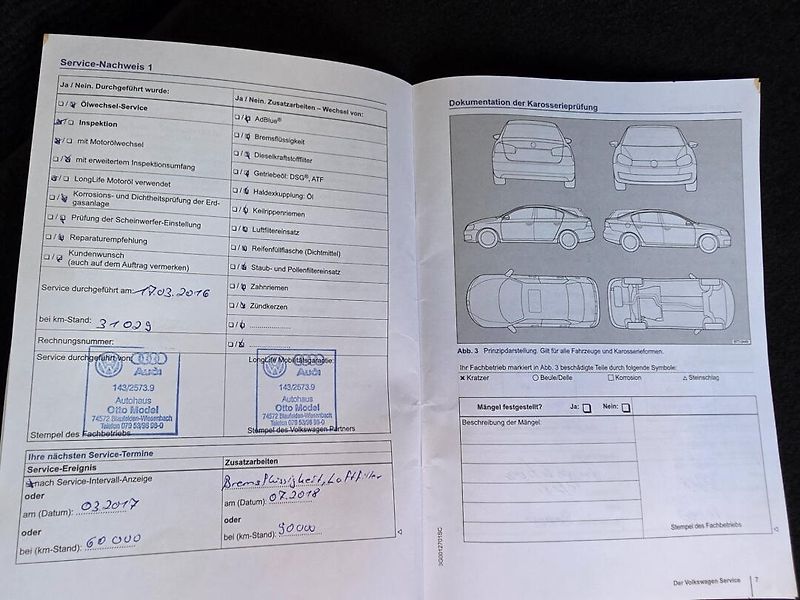 Service-Nachweis 1
Ja / Nein. Durchgeführt wurde:
Ölwechsel-Service
Inspektion
mit Motorölwechsel
mit erweitertem Inspektionsumfang
LongLife Motoröl verwendet
Korrosions- und Dichtheitsprüfung der Erd-
gasanlage
Prüfung der Scheinwerfer-Einstellung
Reparaturempfehlung
Kundenwunsch
(auch auf dem Auftrag vermerken)
Service durchgeführt am: 17.03.2016
bei km-Stand: 31029
Rechnungsnummer:
Service durchgeführt von:
Audi
143/2573.9
Autohaus
Otto Model
74572 Blaufelden-Wiesenbach
Telefon 079 53/98 98-0
Stempel des Fachbetriebs
Ja / Nein. Zusatzarbeiten – Wechsel von:
AdBlue®
Bremsflüssigkeit
Dieselkraftstofffilter
Getriebeöl: DSG®, ATF
Haldexkupplung: Öl
Keilrippenriemen
Luftfiltereinsatz
Reifenfüllflasche (Dichtmittel)
Staub- und Pollenfiltereinsatz
Zahnriemen
Zündkerzen
LongLife Mobilitätsgarantie:
Audi
143/2573.9
Autohaus
Otto Model
74572 Blaufelden-Wiesenbach
Telefon 079 53/98 98-0
Stempel des Volkswagen Partners
Ihre nächsten Service-Termine
Service-Ereignis
nach Service-Intervall-Anzeige
oder
am (Datum): 03.2017
oder
bei (km-Stand): 60 000
Zusatzarbeiten
Bremsflüssigkeit, Luftfilter
am (Datum): 07.2018
oder
bei (km-Stand): 90000
Dokumentation der Karosserieprüfung
Abb. 3 Prinzipdarstellung. Gilt für alle Fahrzeuge und Karosserieformen.
Ihr Fachbetrieb markiert in Abb. 3 beschädigte Teile durch folgende Symbole:
× Kratzer ○ Beule/Delle □ Korrosion △ Steinschlag
Mängel festgestellt? Ja: Nein:
Beschreibung der Mängel:
Stempel des Fachbetriebs
3G0012701SC
Der Volkswagen Service 7